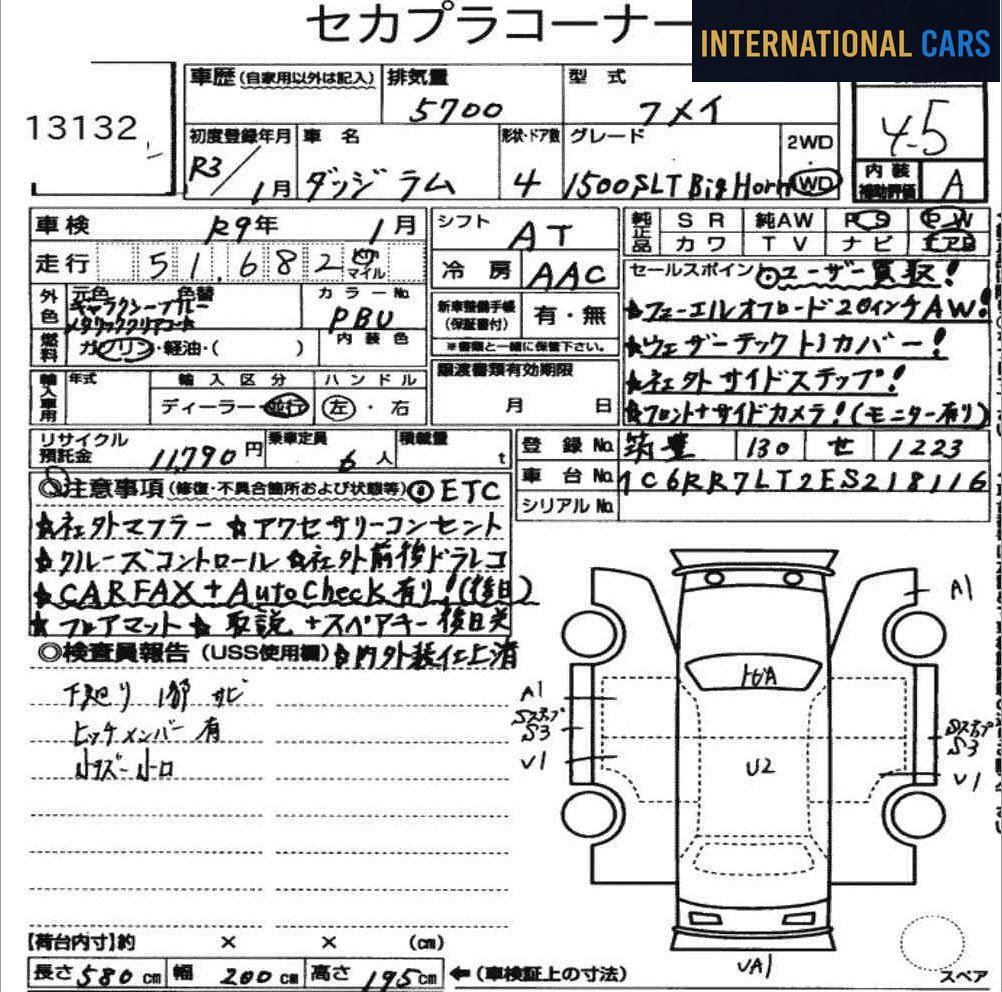 セカプラコーナー
INTERNATIONAL CARS
13132
車歴 (自家用以外は記入) 排気量 型式
5700 フメイ
4.5
初度登録年月 車名 形状・ドア数 グレード 2WD
R3/1月 ダッジ ラム 4 1500SLT Big Horn WD
内装補助評価 A
車検 R9年 1月
走行 51,682 km マイル
外色 元色 色替 カラーNo.
ギャラクシーブルー
メタリッククリアコート PBU
燃料 ガソリン・軽油・( ) 内装色
輸入車用 年式 輸入区分 ハンドル
ディーラー・並行 左・右
シフト AT
冷房 AAC
新車整備手帳(保証書付) 有・無
※書類と一緒に保管下さい。
譲渡書類有効期限
月 日
純正品 SR 純AW PS PW
カワ TV ナビ エアB
セールスポイント ユーザー買取!
★フューエルオフロード20インチAW!
★ウェザーテックトノカバー!
★社外サイドステップ!
★フロント+サイドカメラ!(モニター有り)
リサイクル預託金 11,790円 乗車定員 6人 積載量 t
登録No. 筑豊 130 せ 1223
車台No. 1C6RR7LT2ES218116
シリアルNo.
注意事項 (修復・不具合箇所および状態等) ETC
★社外マフラー ★アクセサリーコンセント
★クルーズコントロール ★社外前後ドラレコ
★CARFAX+AutoCheck有り!(後日)
★フロアマット ★取説+スペアキー後日送
◎検査員報告 (USS使用欄) ★内外装仕上済
下廻り 1部 サビ
ヒッチメンバー有
小キズ-小凹
A1
A1
トビA
Sステップ
S3
Sステップ
S3
V1
U2
V1
VA1
スペア
【荷台内寸】約 × × (cm)
長さ580cm 幅200cm 高さ195cm ←(車検証上の寸法)